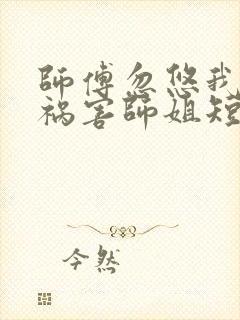 師傅忽悠我
祸害師姐短
今然